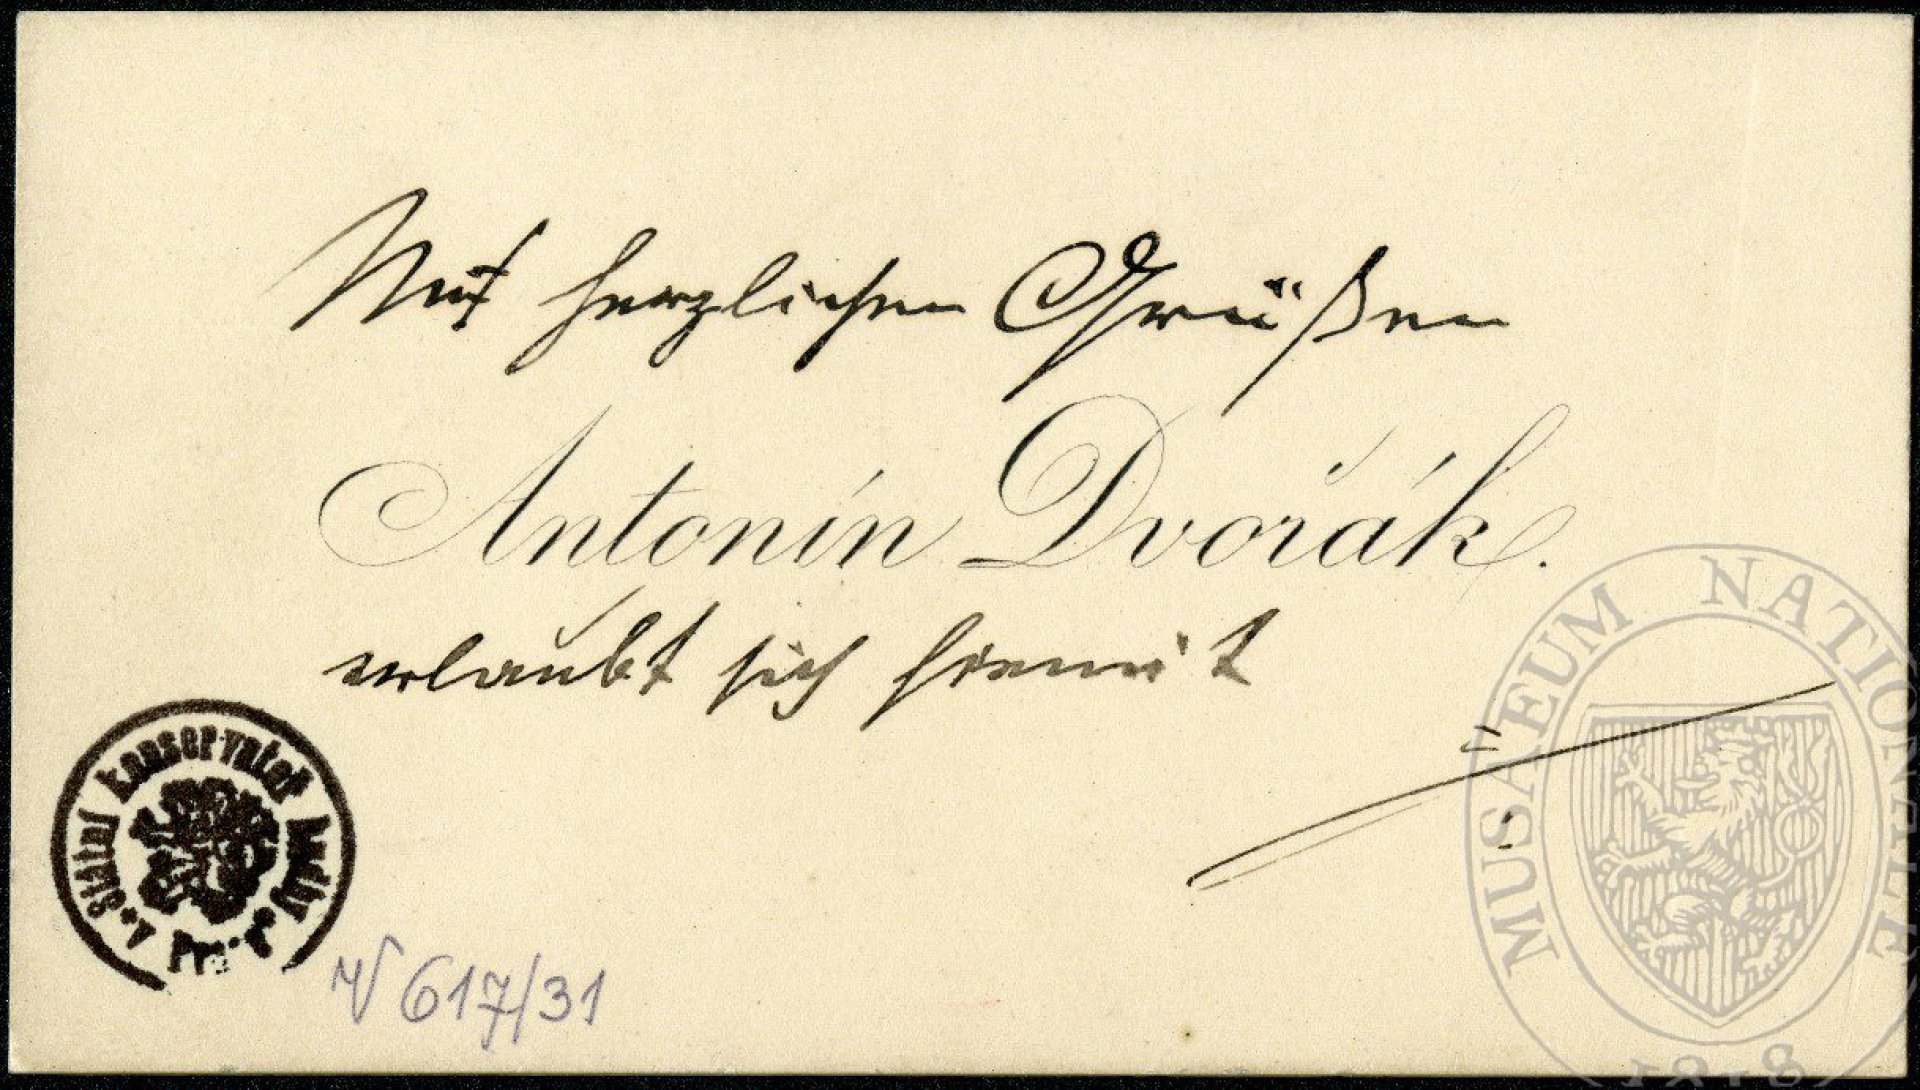 Mit herzlichen Grüßen
Antonín Dvořák.
erlaubt sich hiemit
Státní konservatoř hudby
v Praze
V 617/31
MUSAEUM NATIONALE
1818